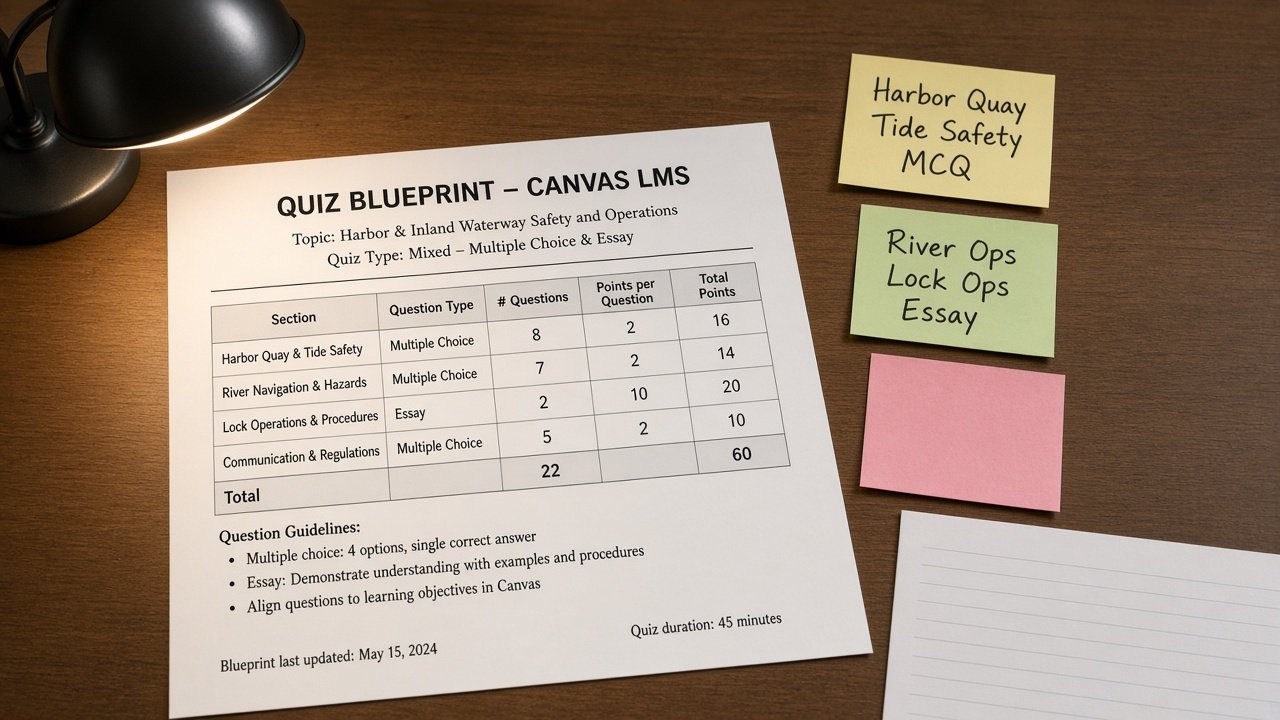 QUIZ BLUEPRINT – CANVAS LMS
Topic: Harbor & Inland Waterway Safety and Operations
Quiz Type: Mixed – Multiple Choice & Essay
Section Question Type # Questions Points per Question Total Points
Harbor Quay & Tide Safety Multiple Choice 8 2 16
River Navigation & Hazards Multiple Choice 7 2 14
Lock Operations & Procedures Essay 2 10 20
Communication & Regulations Multiple Choice 5 2 10
Total 22 60
Question Guidelines:
• Multiple choice: 4 options, single correct answer
• Essay: Demonstrate understanding with examples and procedures
• Align questions to learning objectives in Canvas
Quiz duration: 45 minutes
Blueprint last updated: May 15, 2024
Harbor Quay
Tide Safety
MCQ
River Ops
Lock Ops
Essay